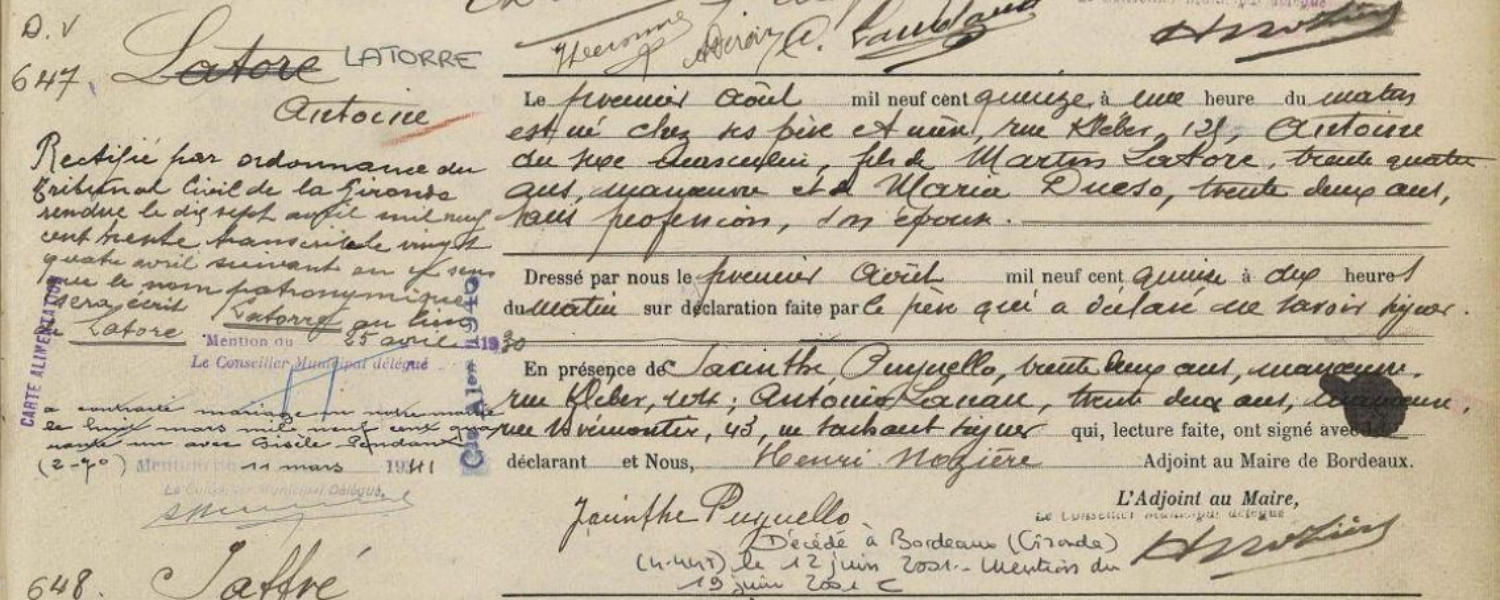 D.V
647.
Latore LATORRE
Antoine
Rectifié par ordonnance du
Tribunal Civil de la Gironde
rendue le dix sept avril mil neuf
cent trente transcrite le vingt
quatre avril suivant en ce sens
que le nom patronymique
sera écrit Latorre au lieu
Latore
Mention du 25 avril 1930
Le Conseiller Municipal délégué
CARTE ALIMENTATION
1940
a contracté mariage en notre mairie
le huit mars mil neuf cent qua
rante un avec Gisèle Pendant
(2-70) Mention 11 mars 1941
Le Conseiller Municipal Délégué,
Le premier Août mil neuf cent quinze, à une heure du matin
est né chez ses père et mère, rue Kléber, 121, Antoine
du sexe masculin, fils de Martin Latore, trente quatre
ans, manœuvre et de Maria Dueso, trente deux ans,
sans profession, son épouse.
Dressé par nous le premier Août mil neuf cent quinze à dix heures
du matin sur déclaration faite par le père qui a déclaré ne savoir signer.
En présence de Jacinthe Puyuello, trente deux ans, manœuvre,
rue Kléber, 104; Antonio Lanau, trente deux ans, manœuvre,
rue Brémontier, 43, ne sachant signer qui, lecture faite, ont signé avec
déclarant et Nous, Henri Nozière Adjoint au Maire de Bordeaux.
L'Adjoint au Maire,
Le Conseiller Municipal délégué
Jacinthe Puyuello
Décédé à Bordeaux (Gironde)
le 12 juin 2001. Mention du
19 juin 2001
648. Jaffré